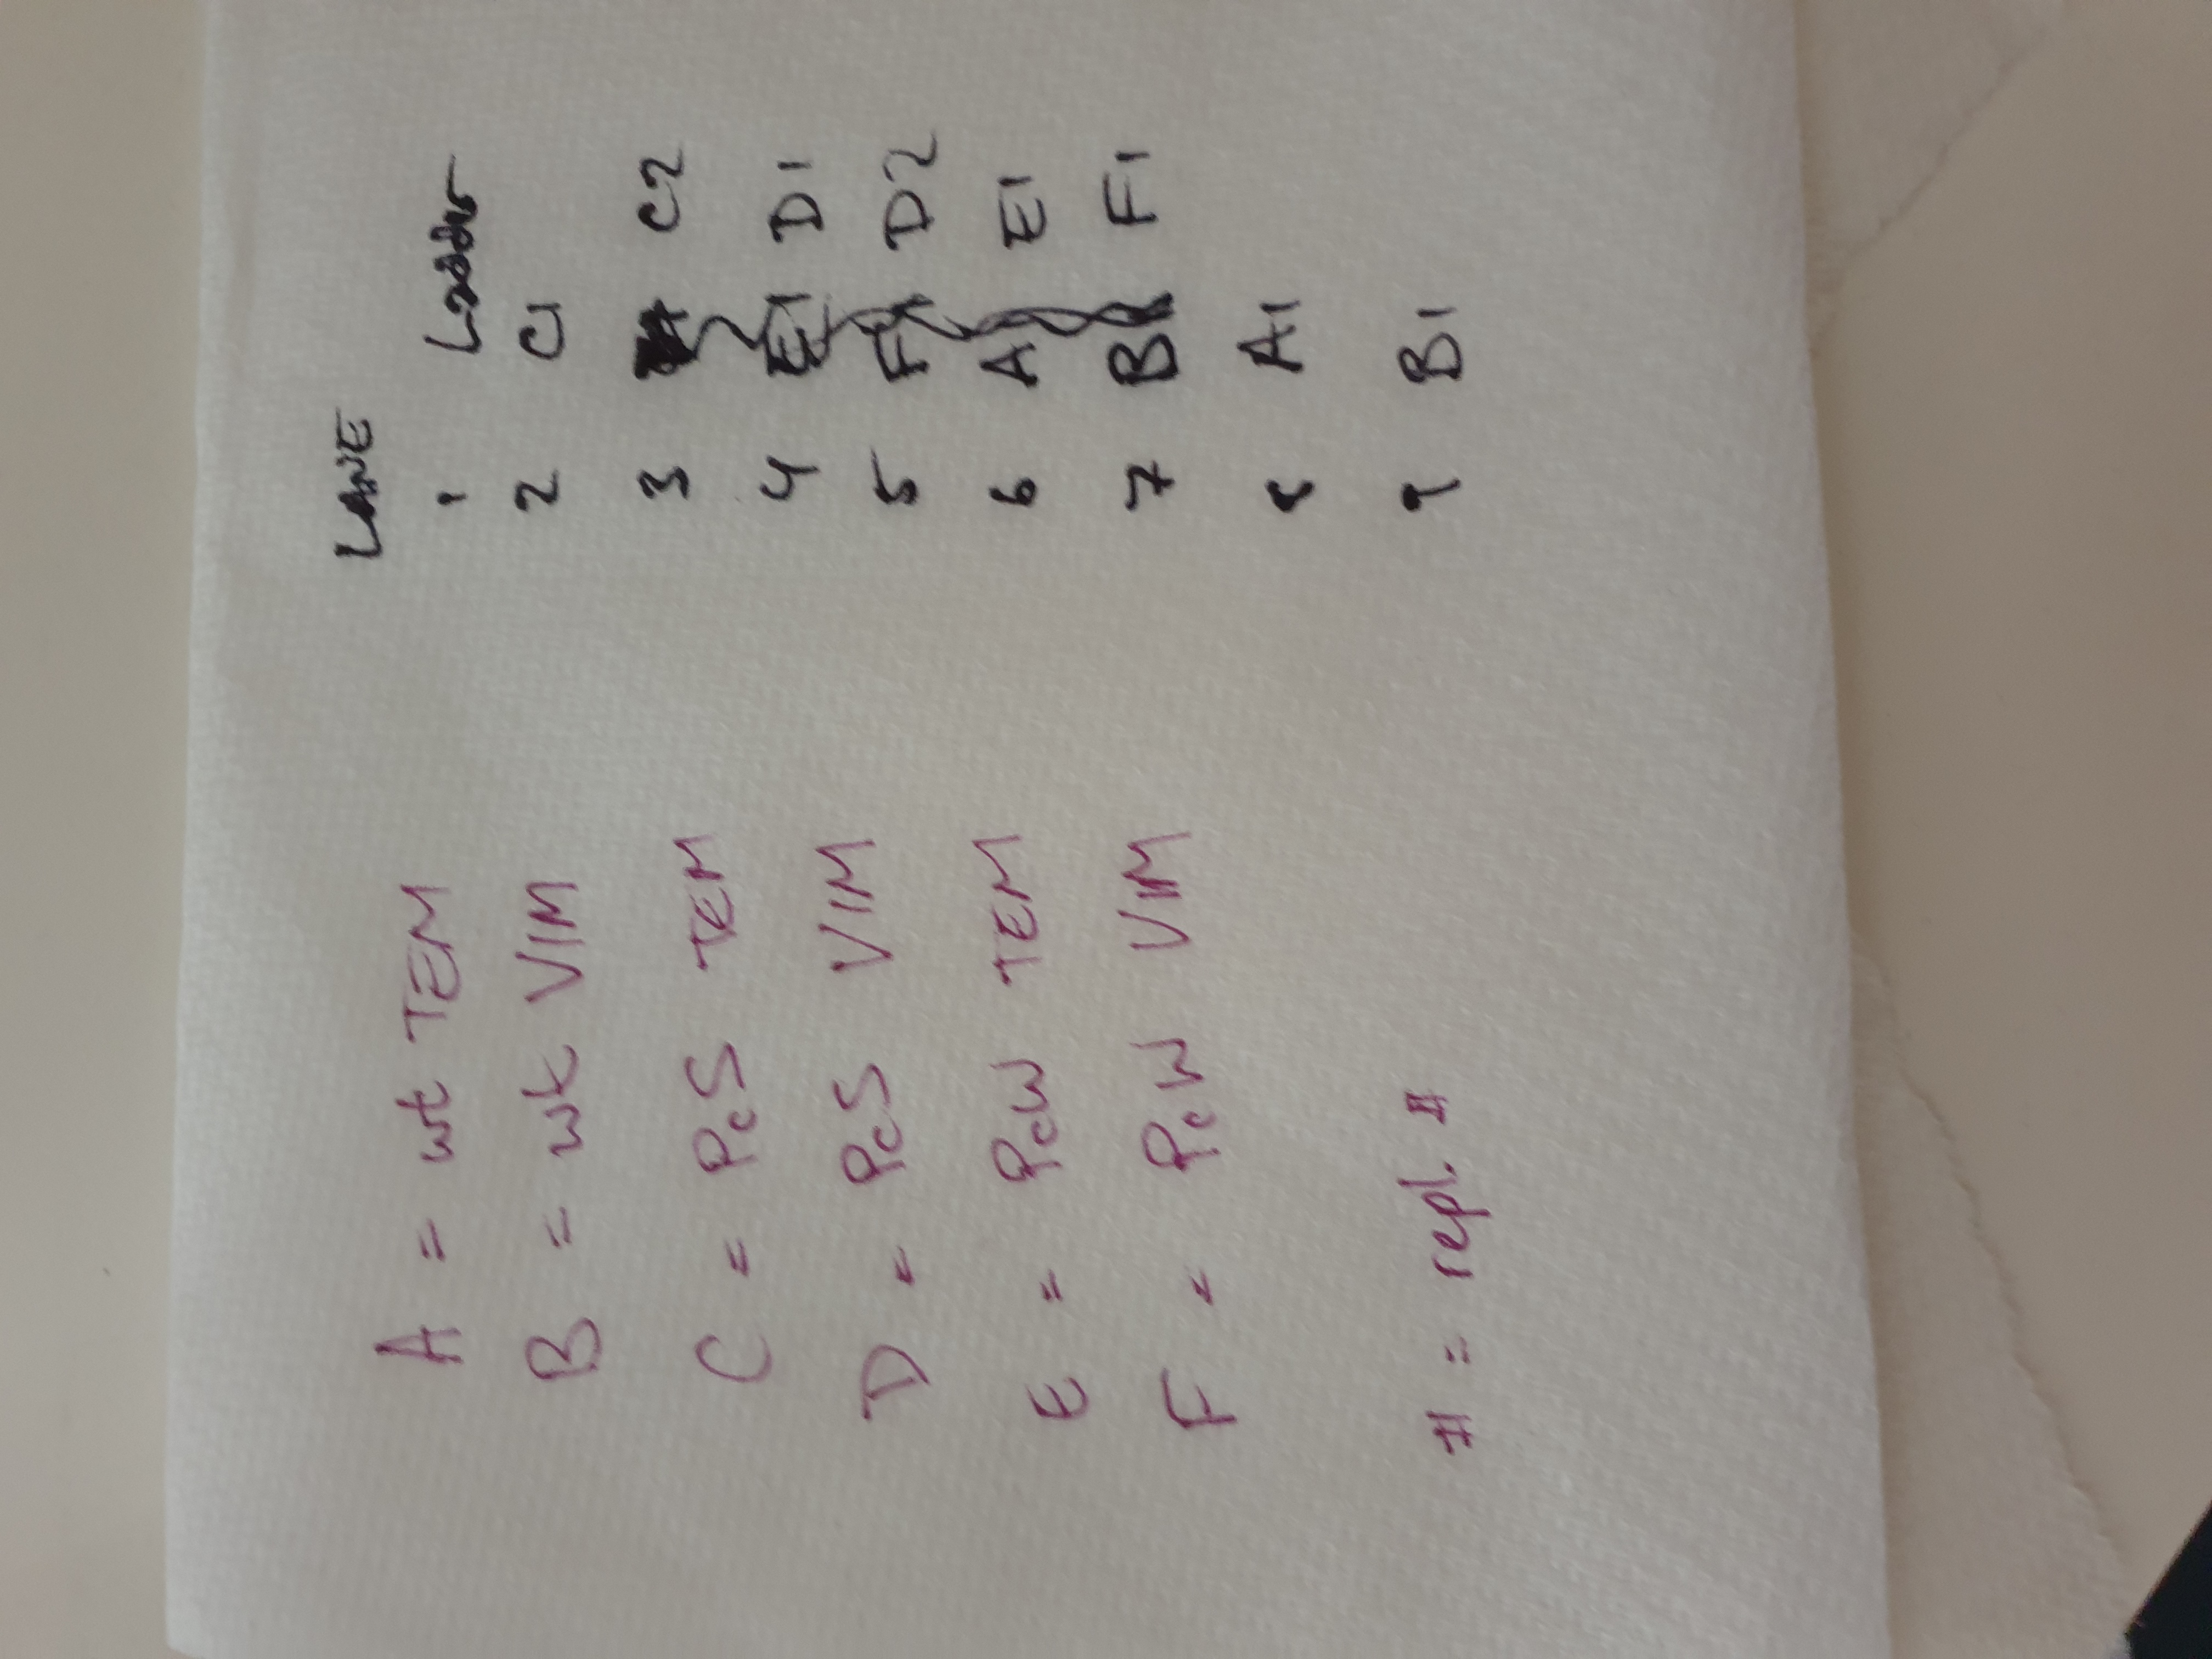 A = wt TEM
B = wt VIM
C = PcS TEM
D = PcS VIM
E = PcW TEM
F = PcW VIM
# = repl. #
LANE
1 Ladder
2 C1
3 C2
4 E1 D1
5 F1 D2
6 A1 E1
7 B1 F1
8 A1
9 B1